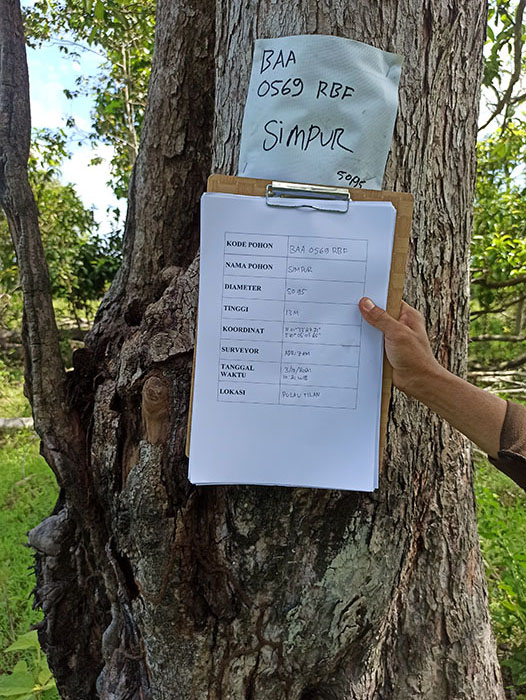 BAA
0569 RBF
SimPUR
50,95
KODE POHON BAA 0569 RBF
NAMA POHON SIMPUR
DIAMETER 50,95
TINGGI 13 M
KOORDINAT
SURVEYOR
TANGGAL
WAKTU WIB
LOKASI PULAU TILAN